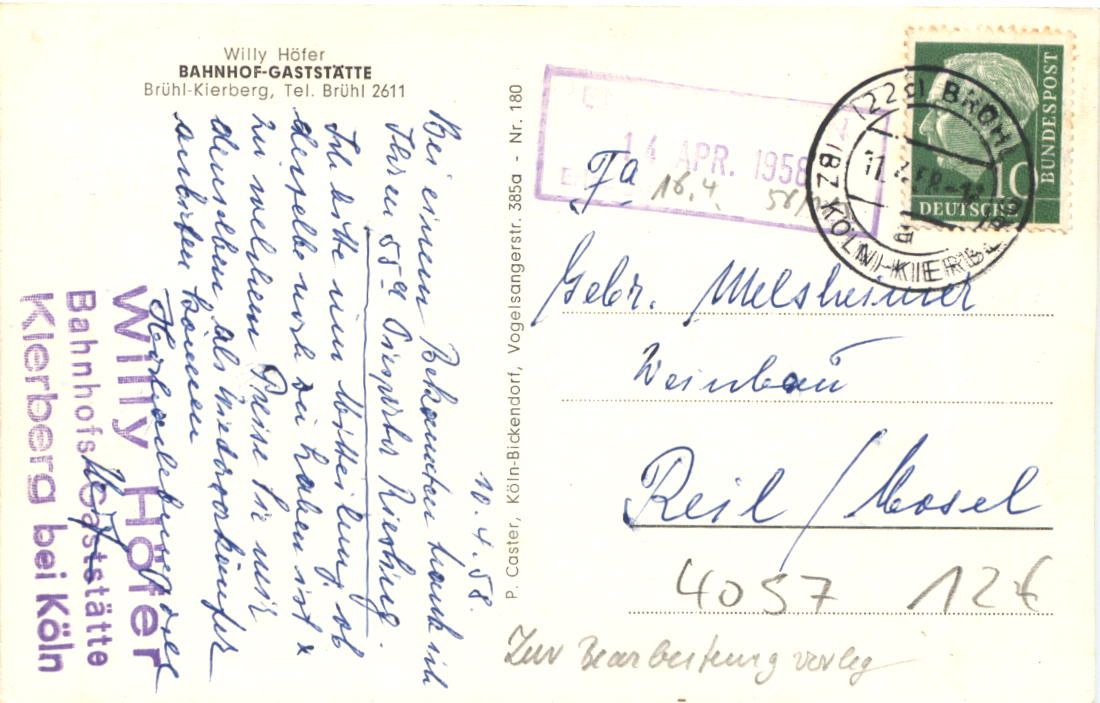 Willy Höfer
BAHNHOF-GASTSTÄTTE
Brühl-Kierberg, Tel. Brühl 2611
10.4.58.
Bei einem Bekannten trank ich
Ihren 55er Piesporter Riesling.
Ich bitte um Mitteilung, ob
derselbe noch zu haben ist x
zu welchem Preise Sie mir
denselben als Wiederverkäufer
anbieten können
Hochachtungsvoll
Willy Höfer
Bahnhofs-Gaststätte
Kierberg bei Köln
P. Caster, Köln-Bickendorf, Vogelsangerstr. 385a - Nr. 180
14 APR. 1958
16.4.
(22c) BRÜHL
(BZ KÖLN)-KIERBERG
a
10
DEUTSCHE
BUNDESPOST
Fa
Gebr. Melsheimer
Weinbau
Reil / Mosel
4057 12€
Zur Bearbeitung vorleg